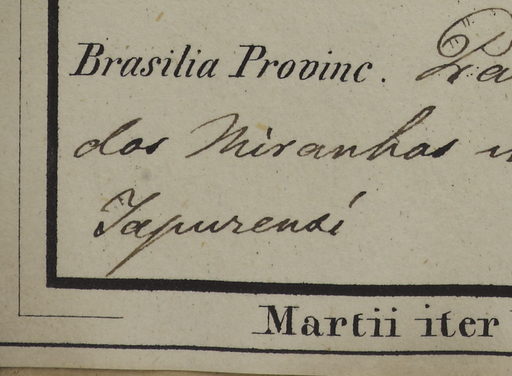 Brasilia Provinc. Pra
dos Miranhas
Japurensi
Martii iter